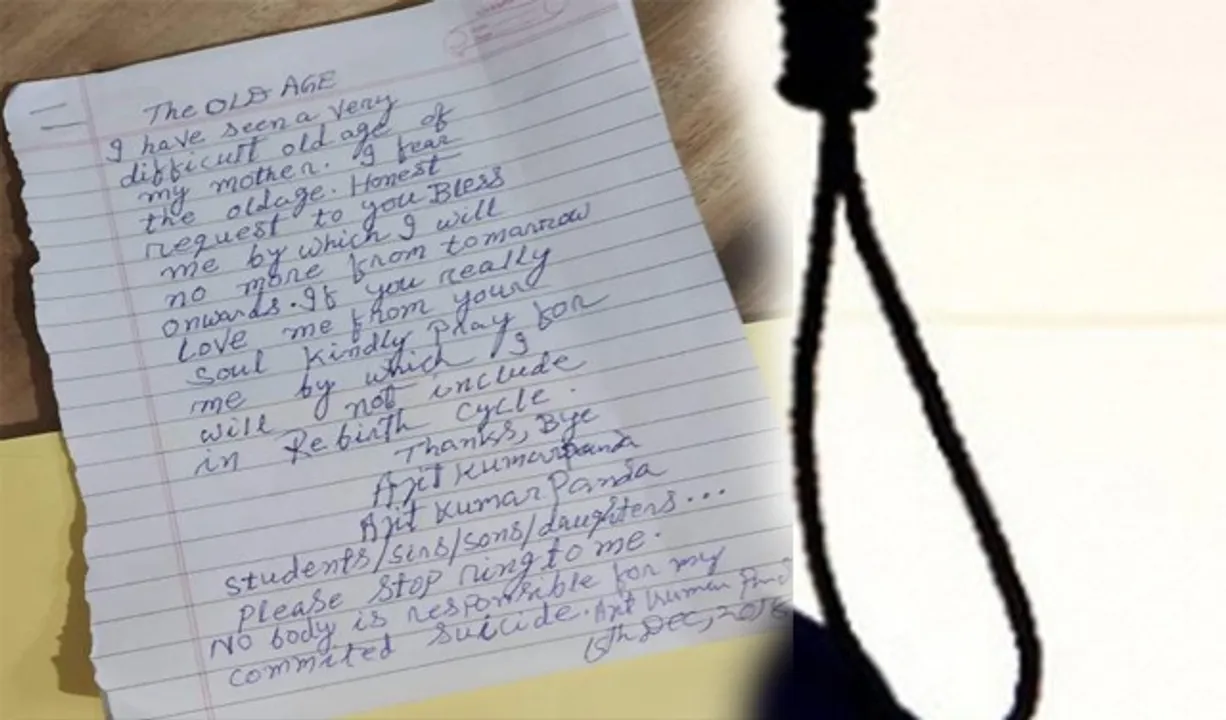 The OLD AGE
I have seen a very
difficult old age of
my mother. I fear
the oldage. Honest
request to you Bless
me by which I will
no more from tomarrow
onwards. If you really
Love me from your
soul kindly Pray for
me by which I
will not include
in Rebirth cycle.
Thanks, Bye
Ajit Kumar Panda
Ajit Kumar Panda
Students/sirs/sons/daughters...
Please stop ring to me.
No body is responsible for my
commited suicide. Ajit Kumar
DEC,